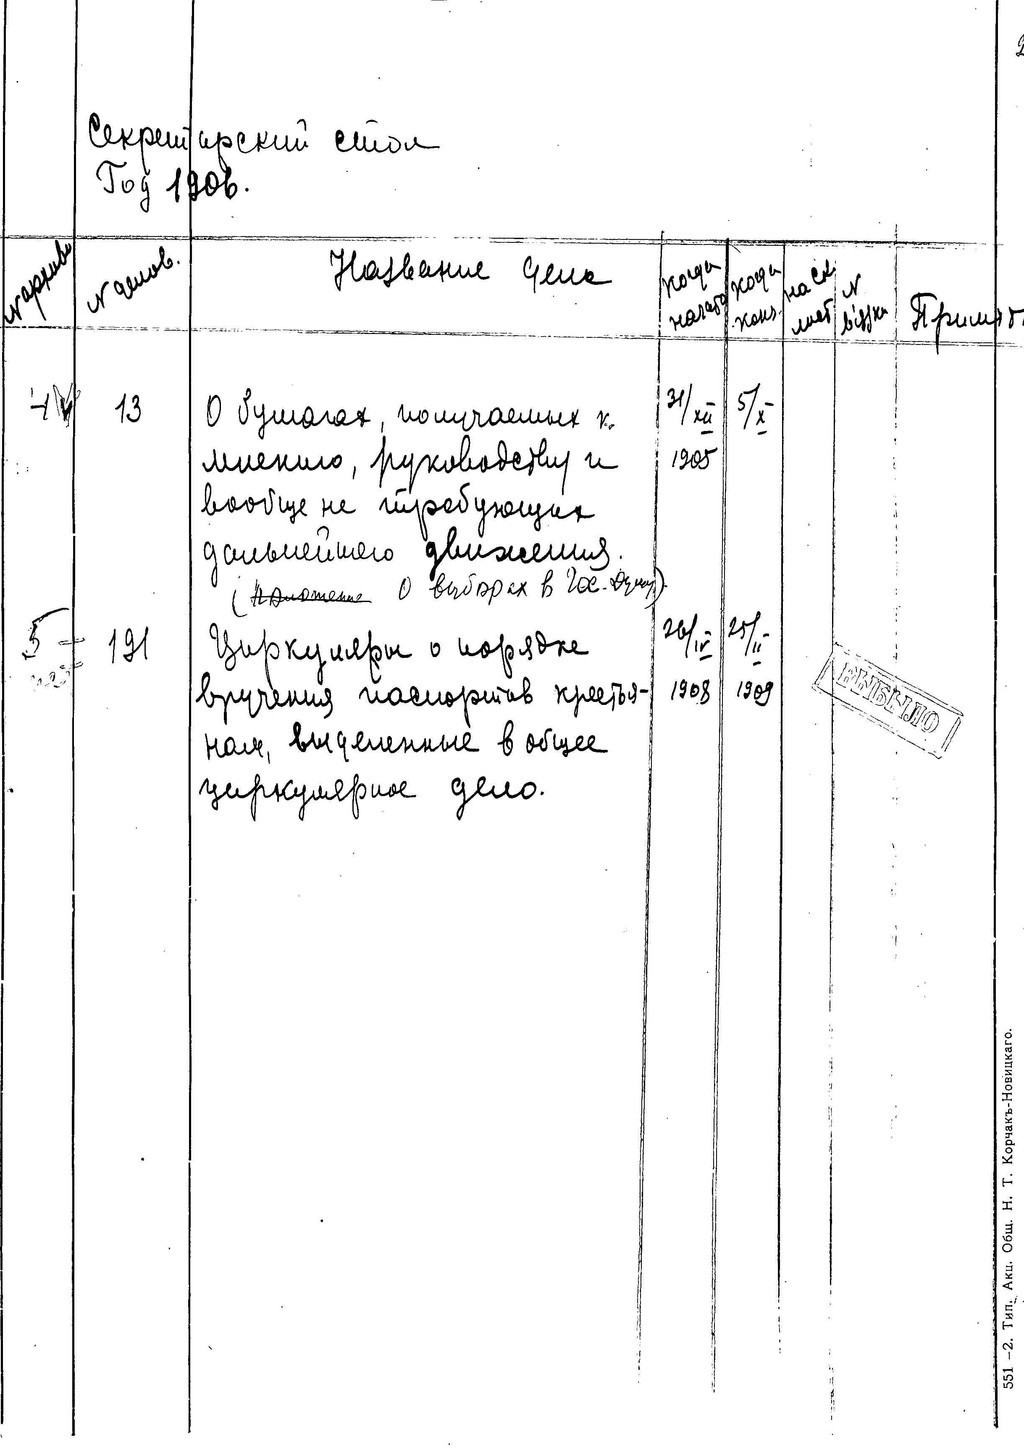 Секретарский стол
Год 1906.
N архив
N делов.
Название дела
когда начато
когда конч.
на ск. лист
N вязки
Примеч
4
13
О бумагах, получаемых к
31/XII
5/X
мнению, руководству и
1905
вообще не требующих
дальнейшего движения.
(О выборах в Гос. Думу).
5
191
Циркуляры о порядке
26/IV
25/II
вручения паспортов крестья-
1908
1909
нам, выделенные в общее
циркулярное дело.
ВЫБЫЛО
551 —2. Тип. Акц. Общ. Н. Т. Корчакъ-Новицкаго.